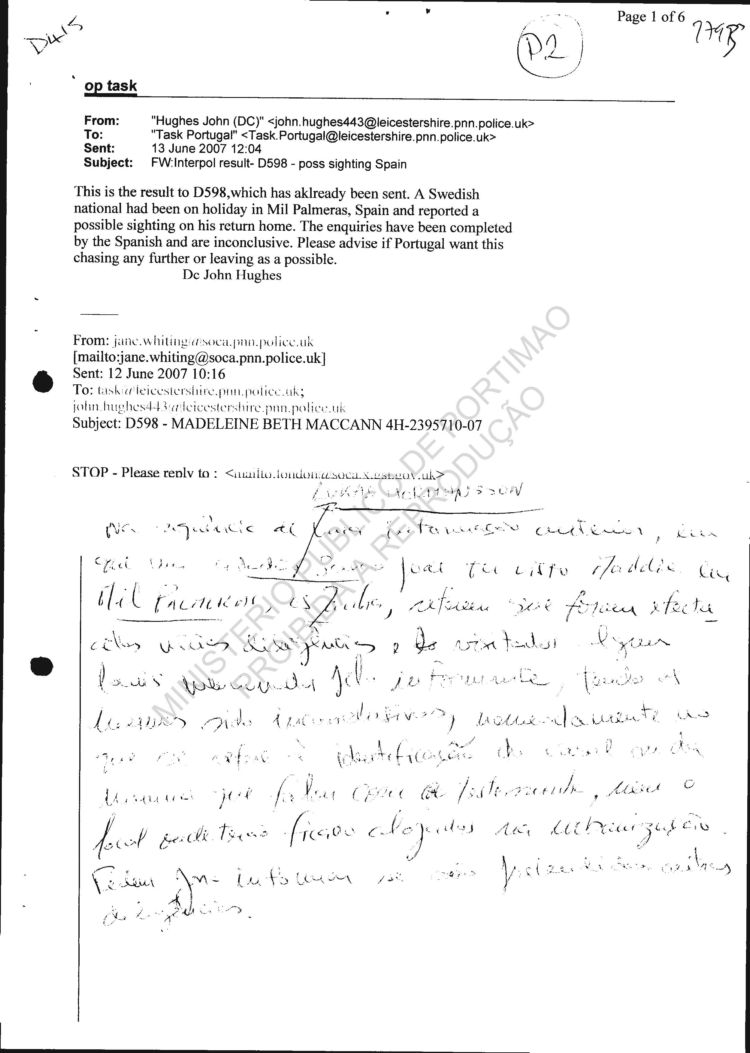 D415
Page 1 of 6
P.2
779B
op task
From: "Hughes John (DC)" <john.hughes443@leicestershire.pnn.police.uk>
To: "Task Portugal" <Task.Portugal@leicestershire.pnn.police.uk>
Sent: 13 June 2007 12:04
Subject: FW:Interpol result- D598 - poss sighting Spain
This is the result to D598,which has aklready been sent. A Swedish
national had been on holiday in Mil Palmeras, Spain and reported a
possible sighting on his return home. The enquiries have been completed
by the Spanish and are inconclusive. Please advise if Portugal want this
chasing any further or leaving as a possible.
Dc John Hughes
From: jane.whiting@soca.pnn.police.uk
[mailto:jane.whiting@soca.pnn.police.uk]
Sent: 12 June 2007 10:16
To: task@leicestershire.pnn.police.uk;
john.hughes443@leicestershire.pnn.police.uk
Subject: D598 - MADELEINE BETH MACCANN 4H-2395710-07
STOP - Please reply to : <mailto:london@soca.x.gsi.gov.uk>
Na sequência de informação anterior, em
que um ter visto Maddie em
Mil Palmeras, referem que foram efectu
adas várias diligências e visitados alguns
locais pelo informante, tendo as
sido inconclusivas, nomeadamente no
que se refere à identificação do casal ou da
menina que com a testemunha, nem o
local onde terão ficado alojados na urbanização.
Pedem para informar se são pretendidas outras
diligências.
MINISTÉRIO PÚBLICO DE PORTIMÃO
PROIBIDA A REPRODUÇÃO